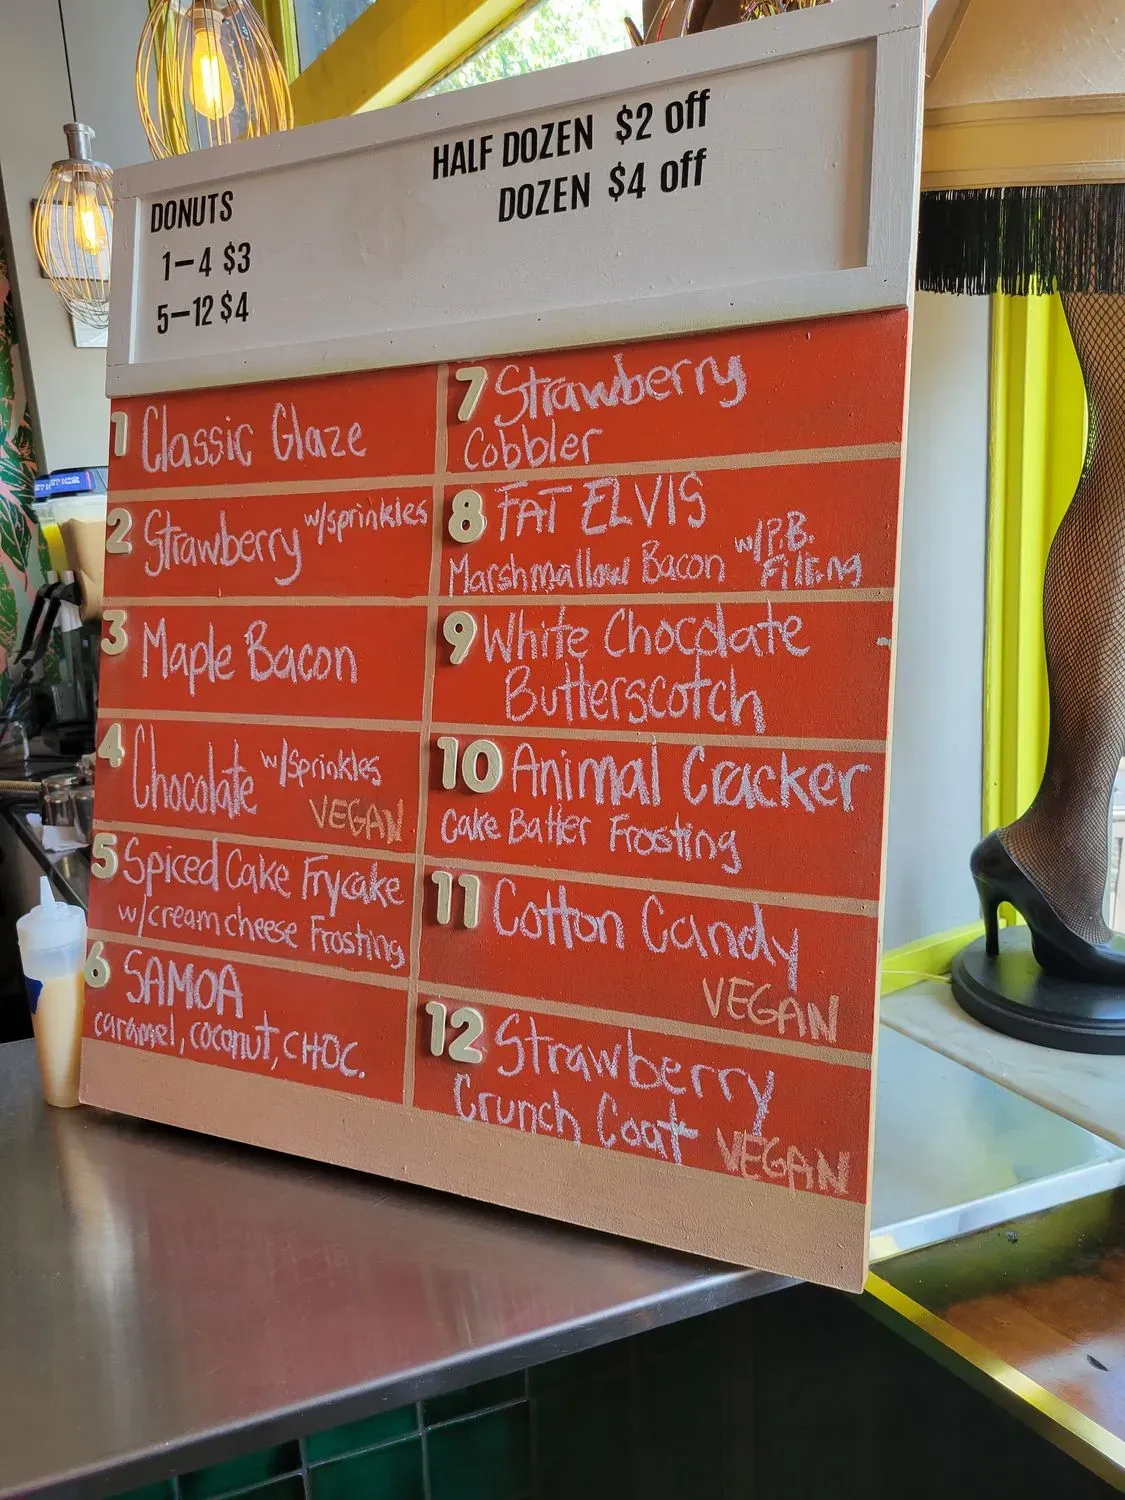 DONUTS
1–4 $3
5–12 $4
HALF DOZEN $2 off
DOZEN $4 off
1 Classic Glaze
2 Strawberry w/sprinkles
3 Maple Bacon
4 Chocolate w/sprinkles
VEGAN
5 Spiced Cake Frycake
w/cream cheese Frosting
6 SAMOA
caramel, coconut, CHOC.
7 Strawberry
Cobbler
8 FAT ELVIS
Marshmallow Bacon w/P.B.
Filling
9 White Chocolate
Butterscotch
10 Animal Cracker
Cake Batter Frosting
11 Cotton Candy
VEGAN
12 Strawberry
Crunch Coat VEGAN